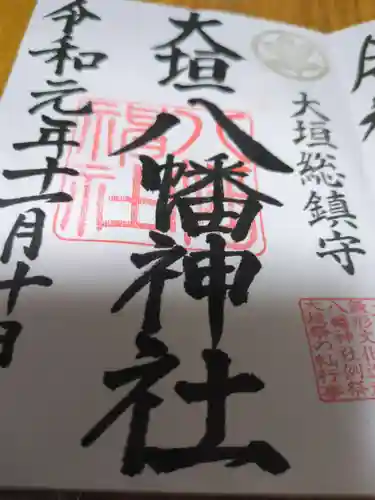 大垣総鎮守
大垣八幡神社
八幡神社
令和元年十一月十日
八幡神社例祭